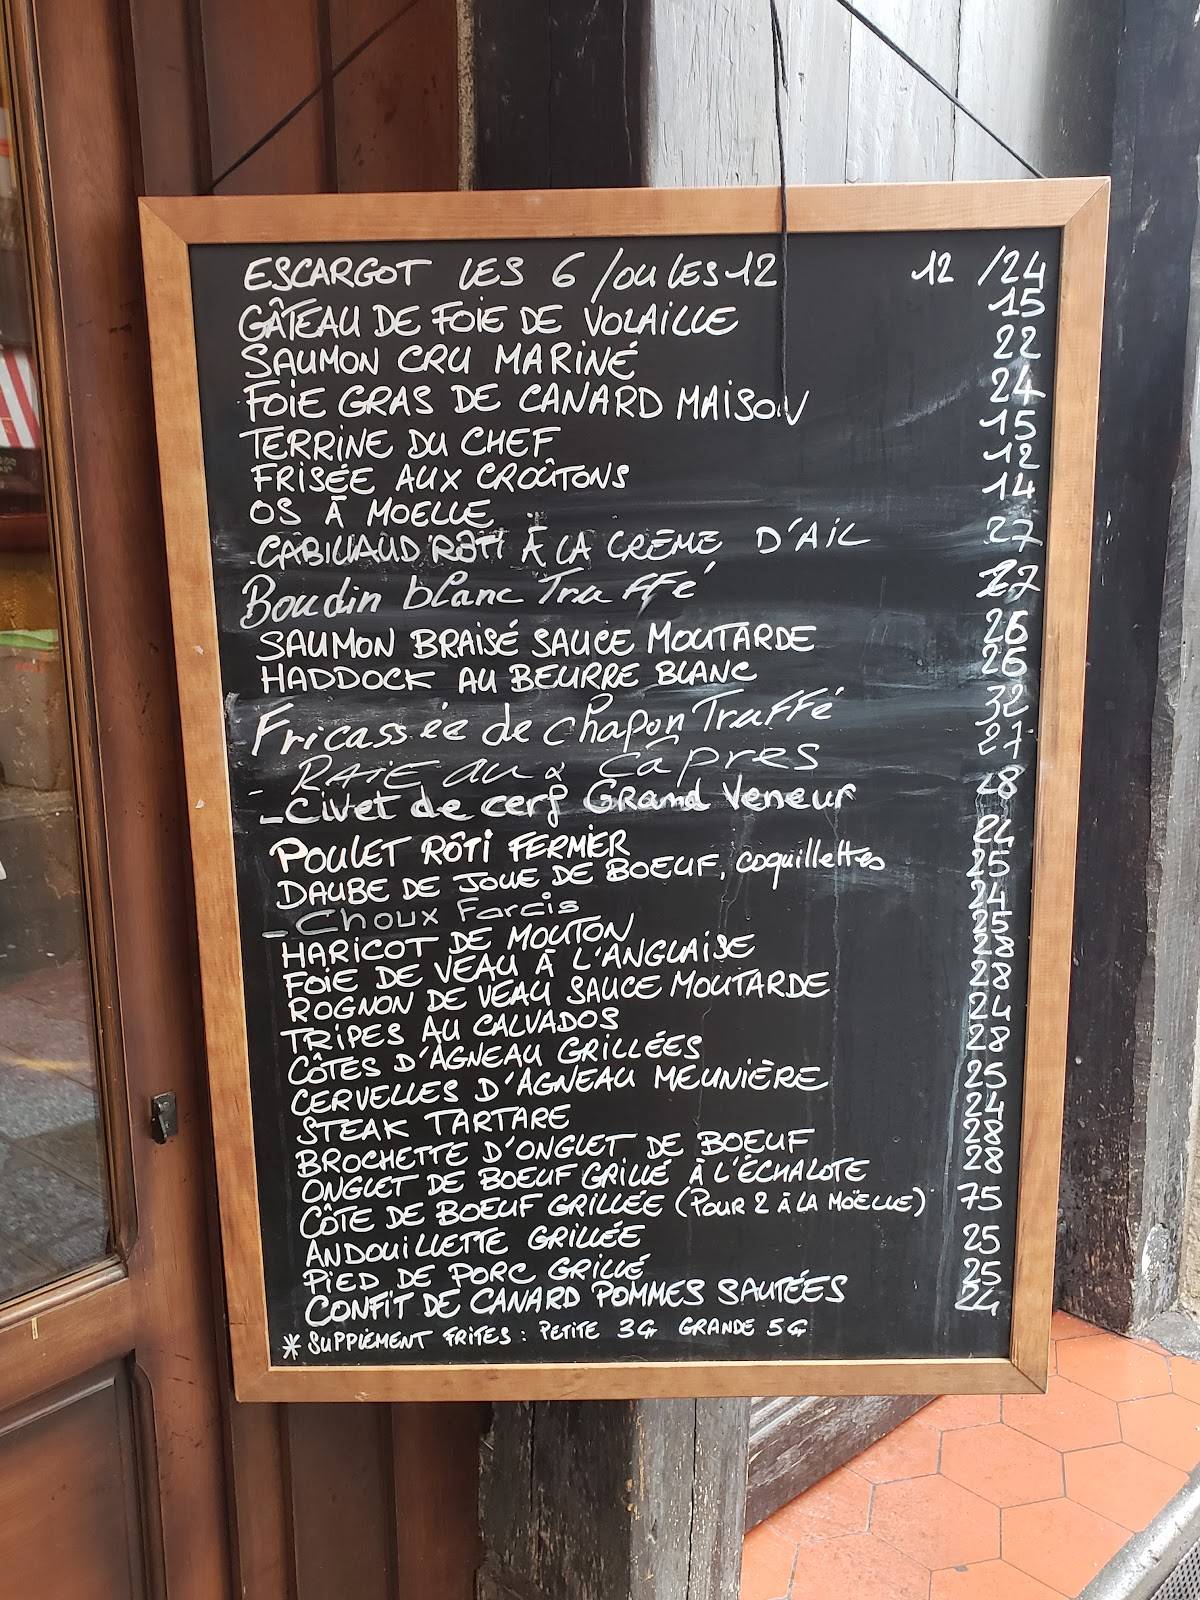 ESCARGOT LES 6 / OU LES 12 12 / 24
GÂTEAU DE FOIE DE VOLAILLE 15
SAUMON CRU MARINÉ 22
FOIE GRAS DE CANARD MAISON 24
TERRINE DU CHEF 15
FRISÉE AUX CROÛTONS 12
OS À MOELLE 14
CABILLAUD RÔTI À LA CRÈME D'AIL 27
Boudin blanc Truffé 27
SAUMON BRAISÉ SAUCE MOUTARDE 26
HADDOCK AU BEURRE BLANC 26
Fricassée de chapon Truffé 32
- RAIE aux Câpres 27
- Civet de cerf Grand Veneur 28
POULET RÔTI FERMIER 24
DAUBE DE JOUE DE BOEUF, coquillettes 25
- Choux Farcis 24
HARICOT DE MOUTON 25
FOIE DE VEAU À L'ANGLAISE 28
ROGNON DE VEAU SAUCE MOUTARDE 28
TRIPES AU CALVADOS 24
CÔTES D'AGNEAU GRILLÉES 28
CERVELLES D'AGNEAU MEUNIÈRE 25
STEAK TARTARE 24
BROCHETTE D'ONGLET DE BOEUF 28
ONGLET DE BOEUF GRILLÉ À L'ÉCHALOTE 28
CÔTE DE BOEUF GRILLÉE (POUR 2 À LA MOËLLE) 75
ANDOUILLETTE GRILLÉE 25
PIED DE PORC GRILLÉ 25
CONFIT DE CANARD POMMES SAUTÉES 24
* SUPPLÉMENT FRITES : PETITE 3€ GRANDE 5€